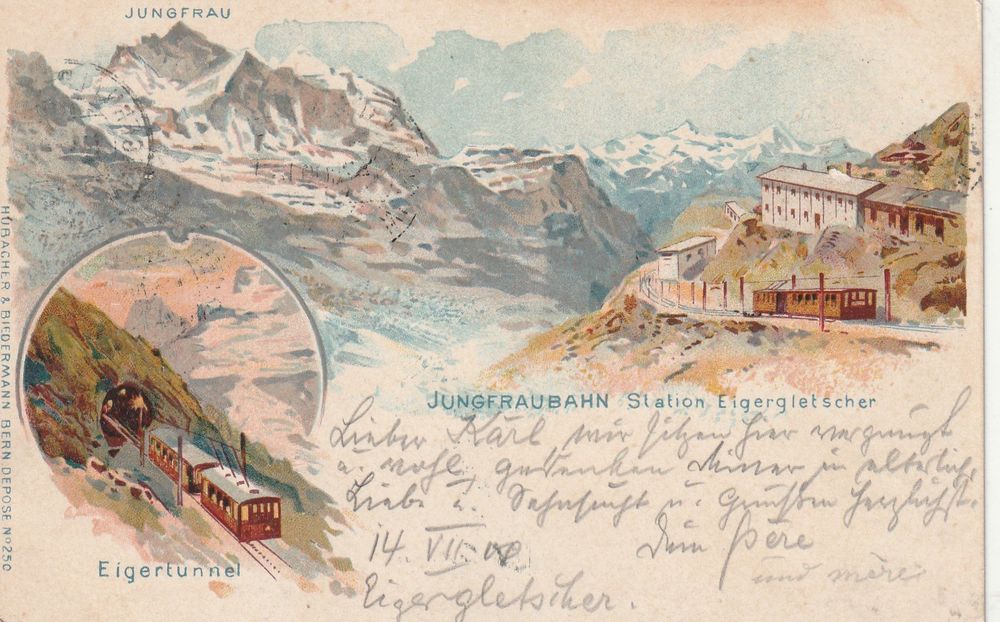 JUNGFRAU
HUBACHER & BIEDERMANN BERN DEPOSE Nº 250
JUNGFRAUBAHN Station Eigergletscher
Lieber Karl wir sitzen hier vergnügt
u. wohl, gedenken Deiner in elterlich.
Liebe u. Sehnsucht u. Grüssen herzlichst.
14. VII 00
Dein Père
und mère
Eigergletscher.
Eigertunnel